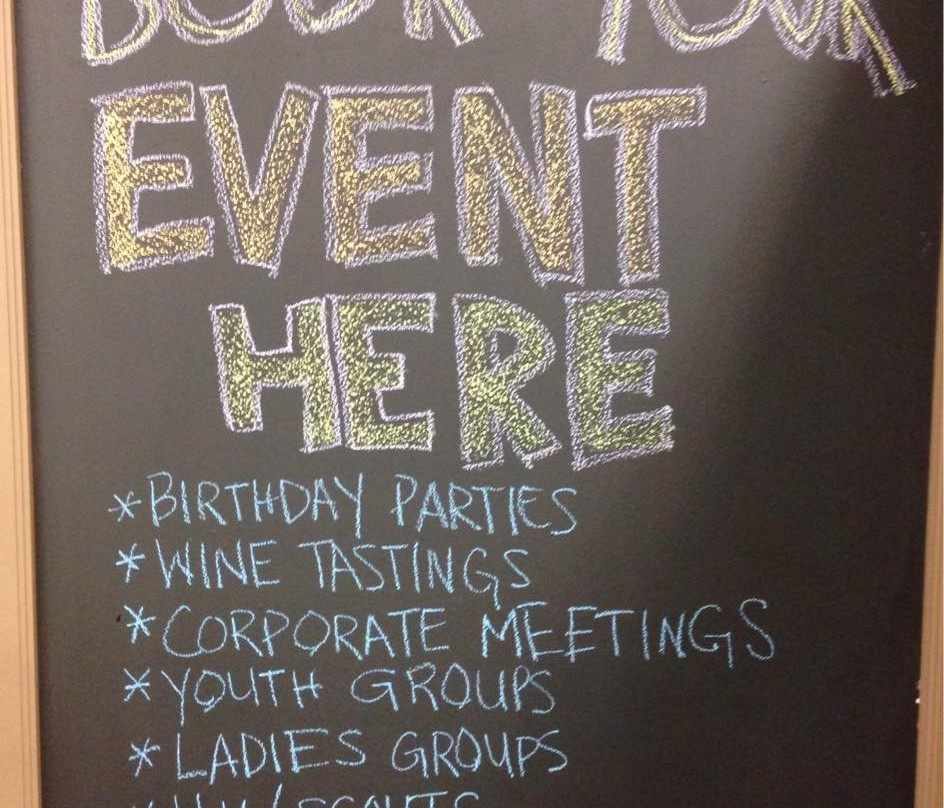 BOOK YOUR
EVENT
HERE
*BIRTHDAY PARTIES
*WINE TASTINGS
*CORPORATE MEETINGS
*YOUTH GROUPS
*LADIES GROUPS
SCOUTS